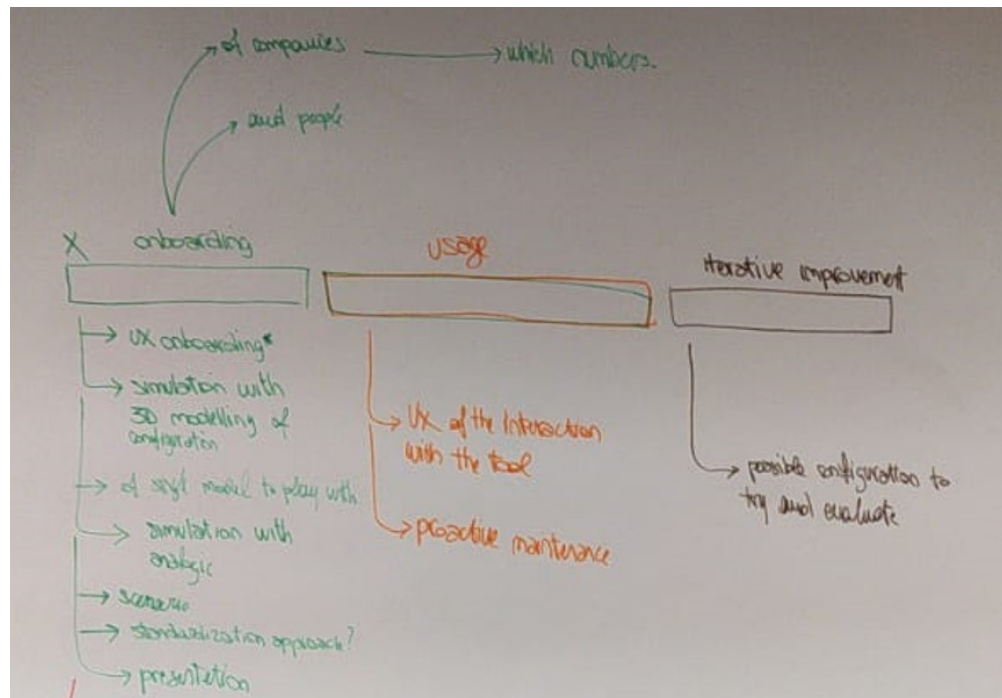 of companies
which numbers.
and people
X onboarding
usage
iterative improvement
UX onboarding*
simulation with
3D modelling of
configuration
of model to play with
simulation with
analogic
scenario
standardization approach?
presentation
UX of the Interaction
with the tool
proactive maintenance
possible configuration to
try and evaluate